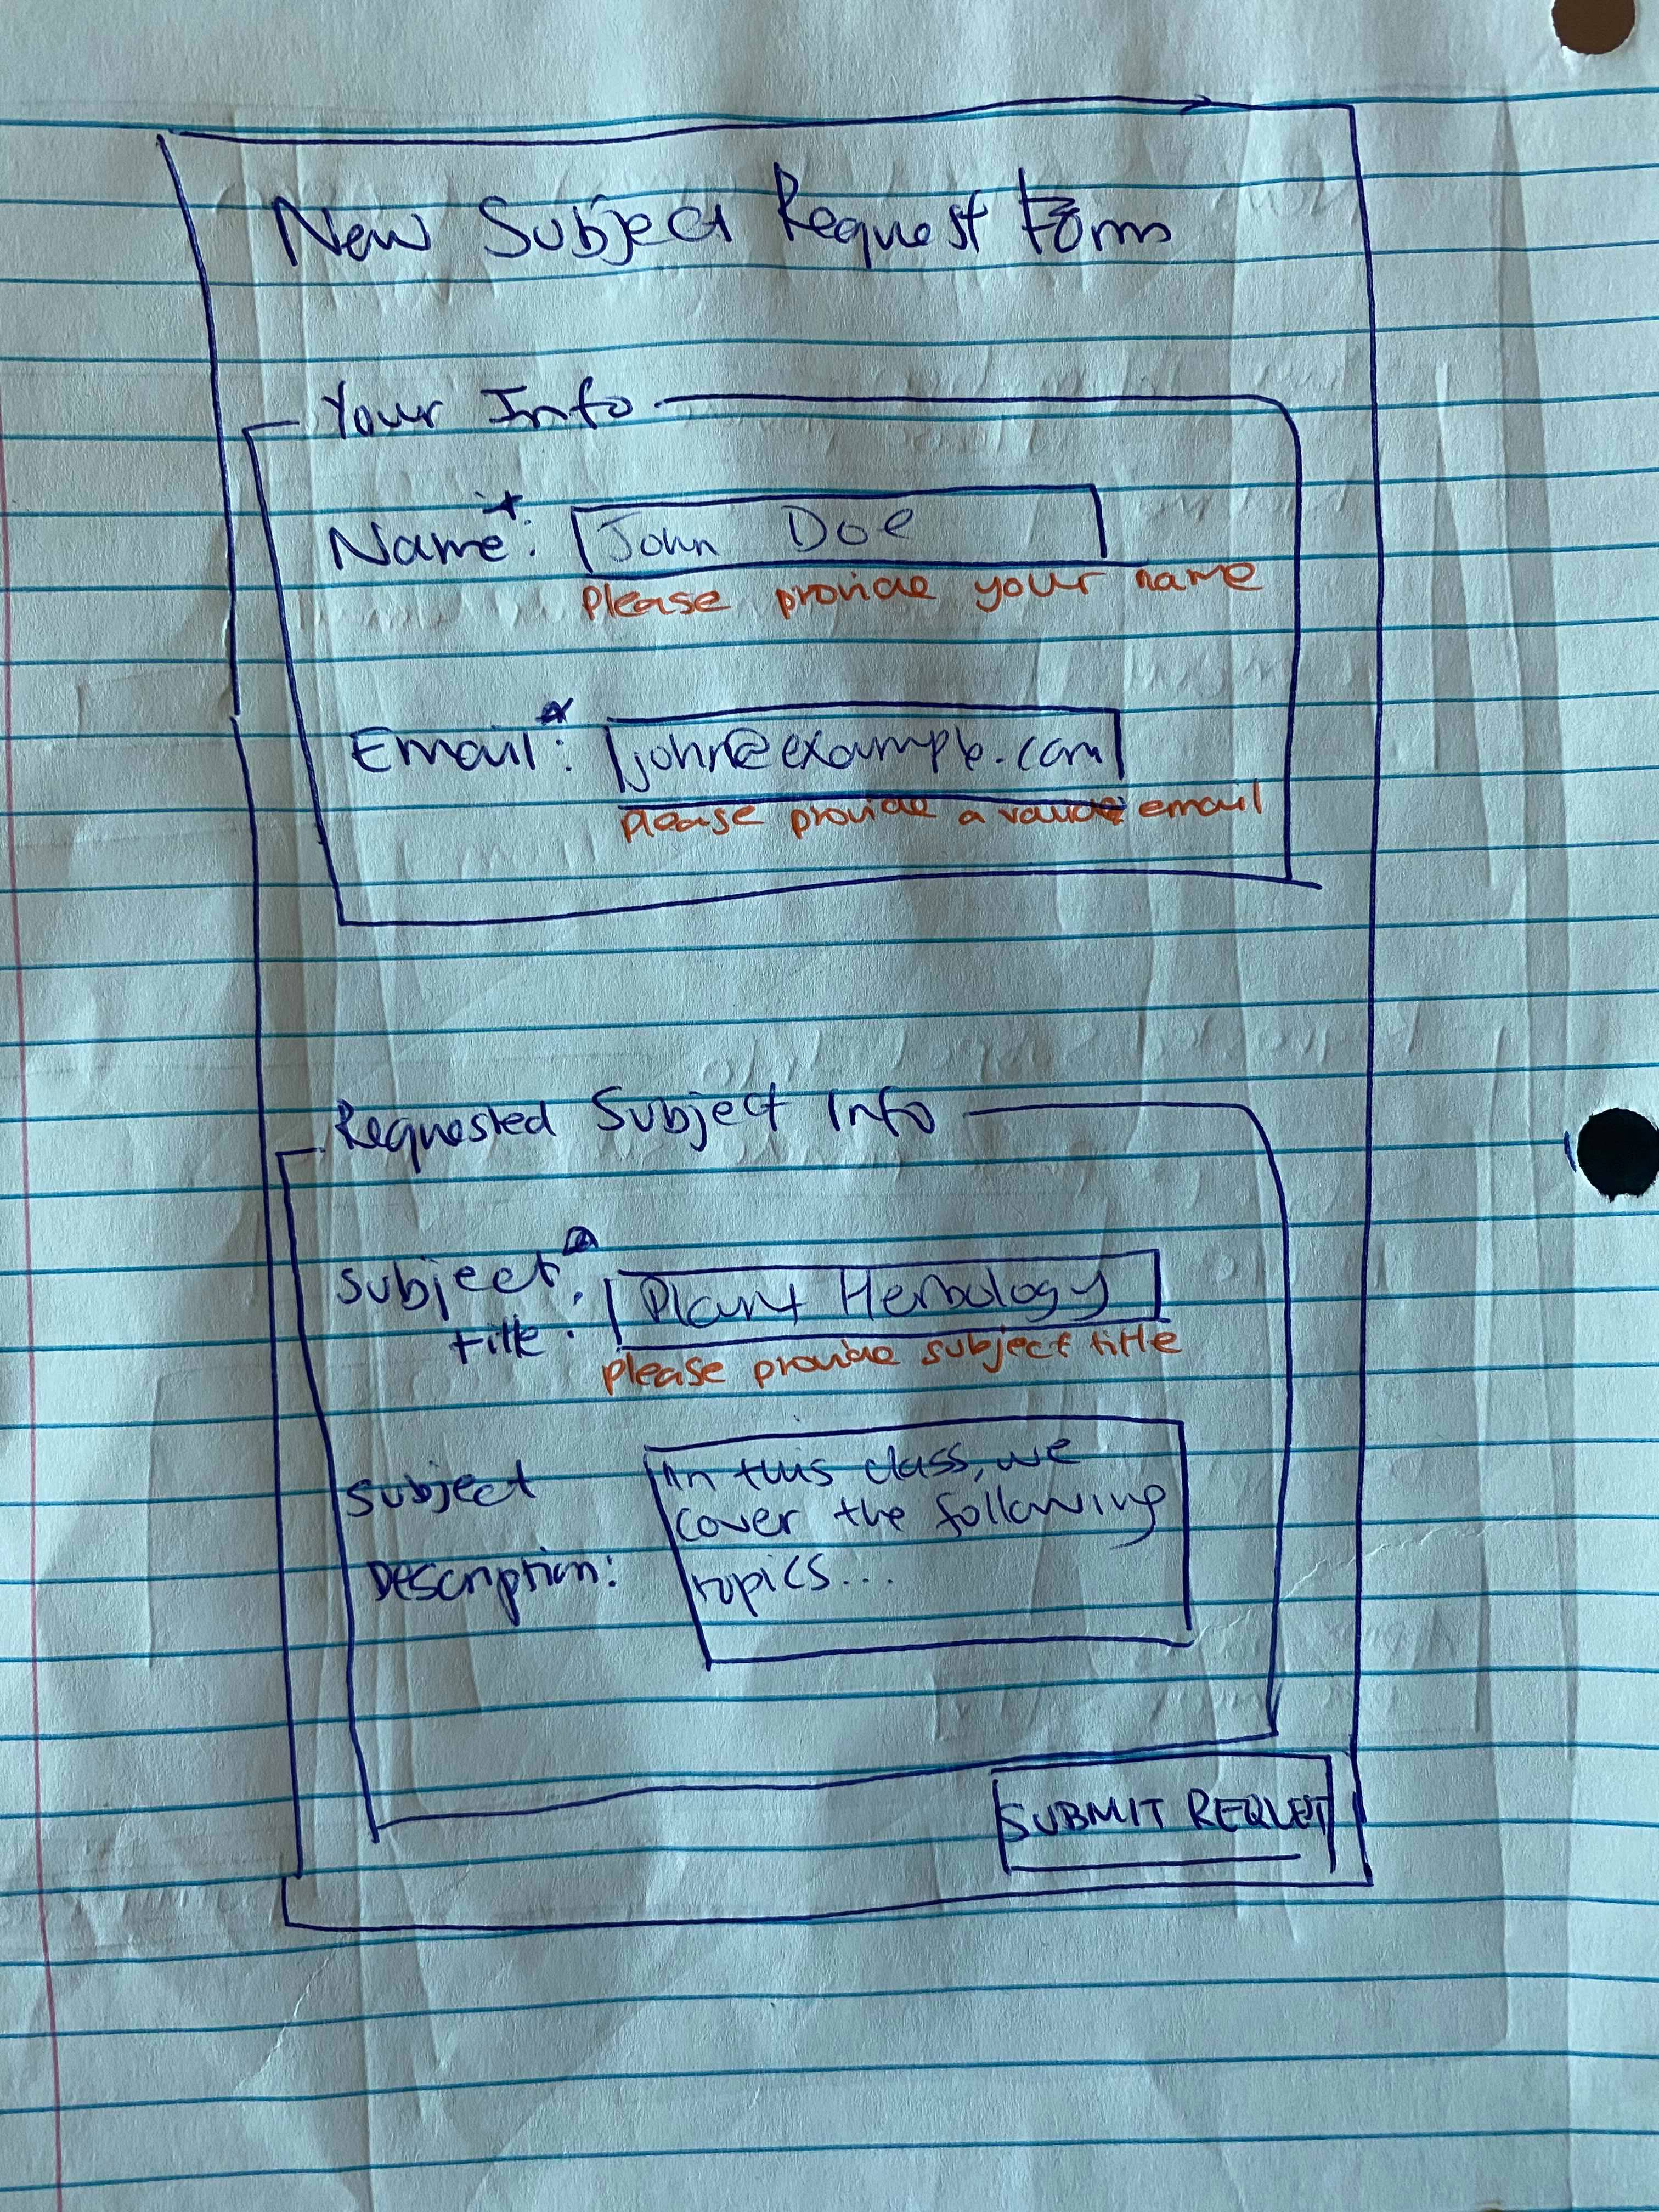 New Subject Request Form
Your Info
Name*: John Doe
Please provide your name
Email*: john@example.com
please provide a valid email
Requested Subject Info
Subject*: Plant Herbology
title:
please provide subject title
Subject
Description:
In this class, we
cover the following
topics...
SUBMIT REQUET